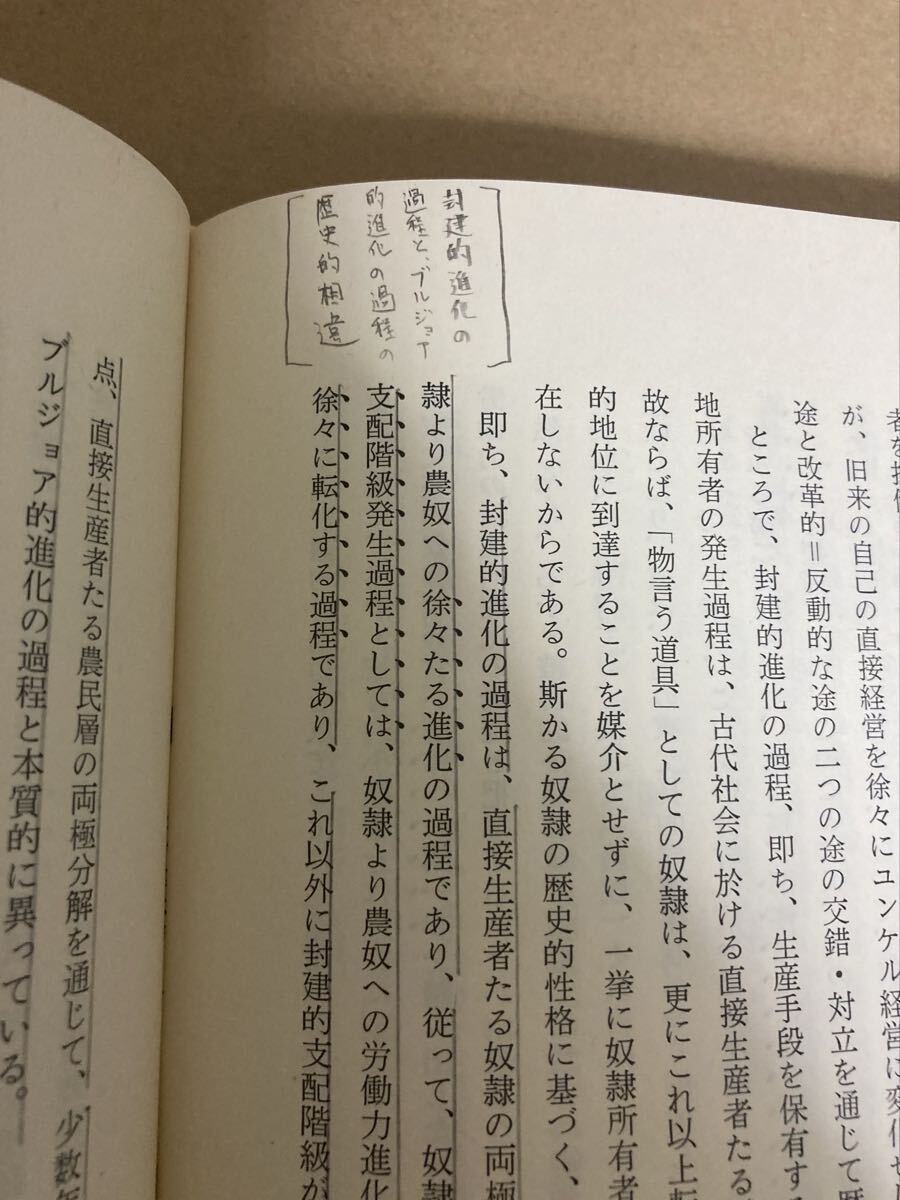 封建的進化の
過程と、ブルジョア
的進化の過程の
歴史的相違
が、旧来の自己の直接経営を徐々にユンケル経営に変化せ
途と改革的＝反動的な途の二つの途の交錯・対立を通じて
ところで、封建的進化の過程、即ち、生産手段を保有す
地所有者の発生過程は、古代社会に於ける直接生産者たる
故ならば、「物言う道具」としての奴隷は、更にこれ以上転
的地位に到達することを媒介とせずに、一挙に奴隷所有者
在しないからである。斯かる奴隷の歴史的性格に基づく、
即ち、封建的進化の過程は、直接生産者たる奴隷の両極
隷より農奴への徐々たる進化の過程であり、従って、奴隷
支配階級発生過程としては、奴隷より農奴への労働力進化
徐々に転化する過程であり、これ以外に封建的支配階級が
点、直接生産者たる農民層の両極分解を通じて、少数
ブルジョア的進化の過程と本質的に異っている。